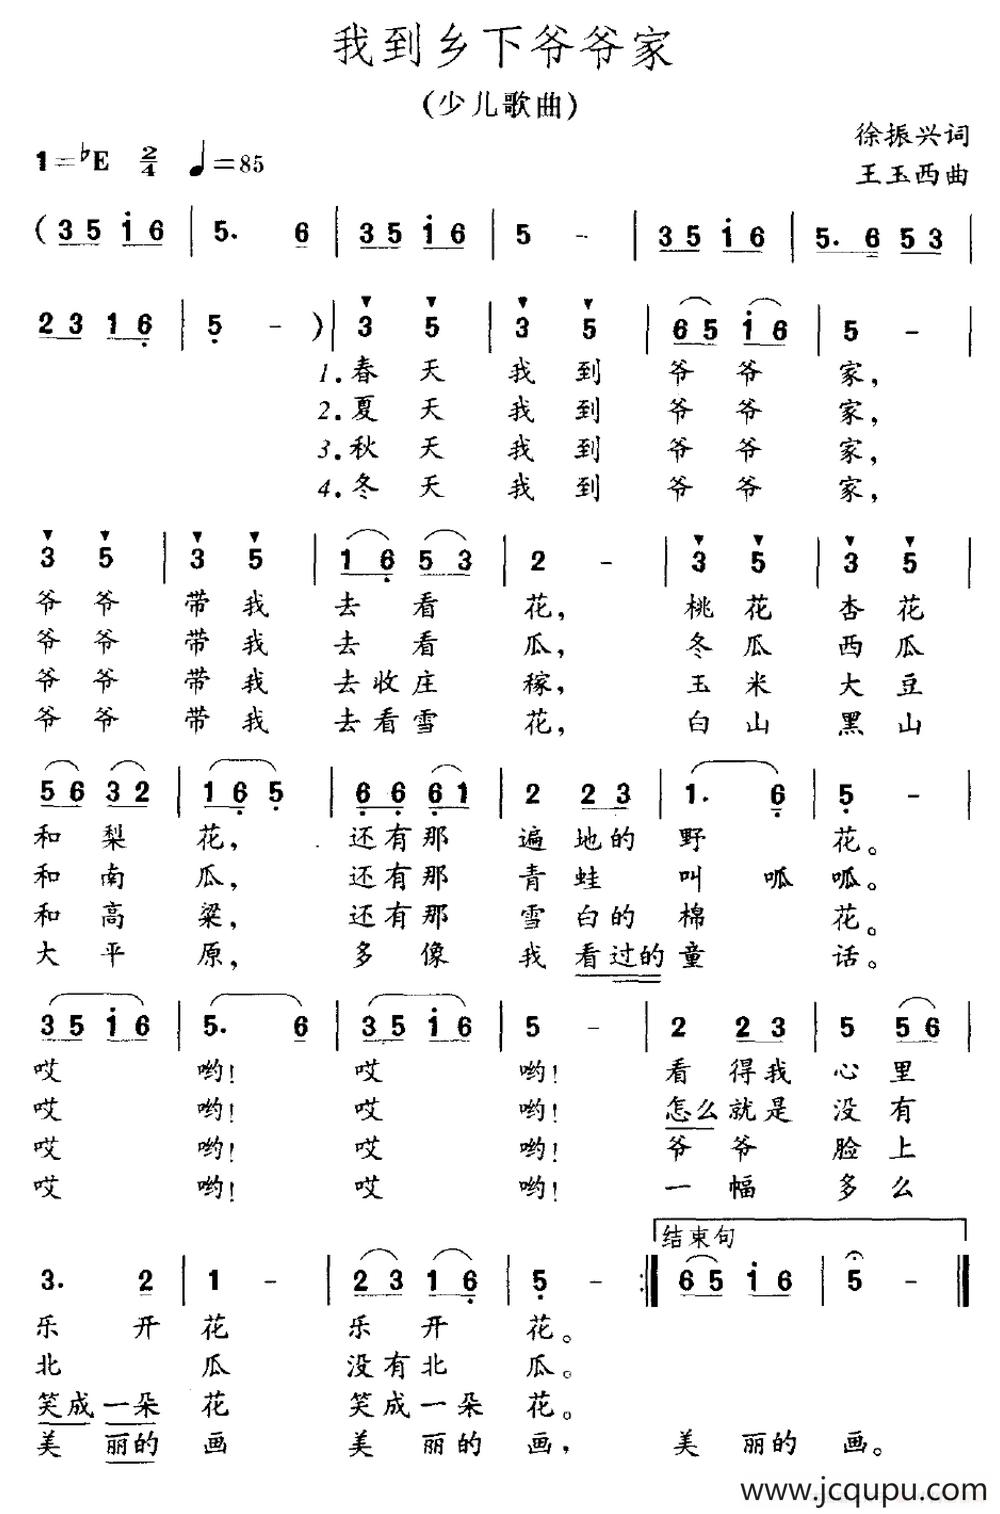 我到乡下爷爷家
(少儿歌曲)
徐振兴词
1=♭E 2/4 ♩=85
王玉西曲
(3 5 i 6 | 5. 6 | 3 5 i 6 | 5 - | 3 5 i 6 | 5. 6 5 3 |
2 3 1 6 | 5 - ) | 3 5 | 3 5 | 6 5 i 6 | 5 - |
1.春天 我到 爷爷 家,
2.夏天 我到 爷爷 家,
3.秋天 我到 爷爷 家,
4.冬天 我到 爷爷 家,
3 5 | 3 5 | 1 6 5 3 | 2 - | 3 5 | 3 5 |
爷爷 带我 去看 花, 桃花 杏花
爷爷 带我 去看 瓜, 冬瓜 西瓜
爷爷 带我 去收庄 稼, 玉米 大豆
爷爷 带我 去看雪 花, 白山 黑山
5 6 3 2 | 1 6 5 | 6 6 6 1 | 2 2 3 | 1. 6 | 5 - |
和梨 花, 还有那 遍地的 野 花。
和南 瓜, 还有那 青蛙 叫呱 呱。
和高 粱, 还有那 雪白的 棉 花。
大平 原, 多像 我看过的 童 话。
3 5 i 6 | 5. 6 | 3 5 i 6 | 5 - | 2 2 3 | 5 5 6 |
哎 哟! 哎 哟! 看得我 心里
哎 哟! 哎 哟! 怎么就是 没有
哎 哟! 哎 哟! 爷爷 脸上
哎 哟! 哎 哟! 一幅 多么
结束句
3. 2 | 1 - | 2 3 1 6 | 5 - :‖ 6 5 i 6 | 5 - ‖
乐开 花 乐开 花。
北 瓜 没有北 瓜。
笑成一朵 花 笑成一朵 花。
美丽的 画 美丽的 画, 美丽的 画。
www.jcqupu.com